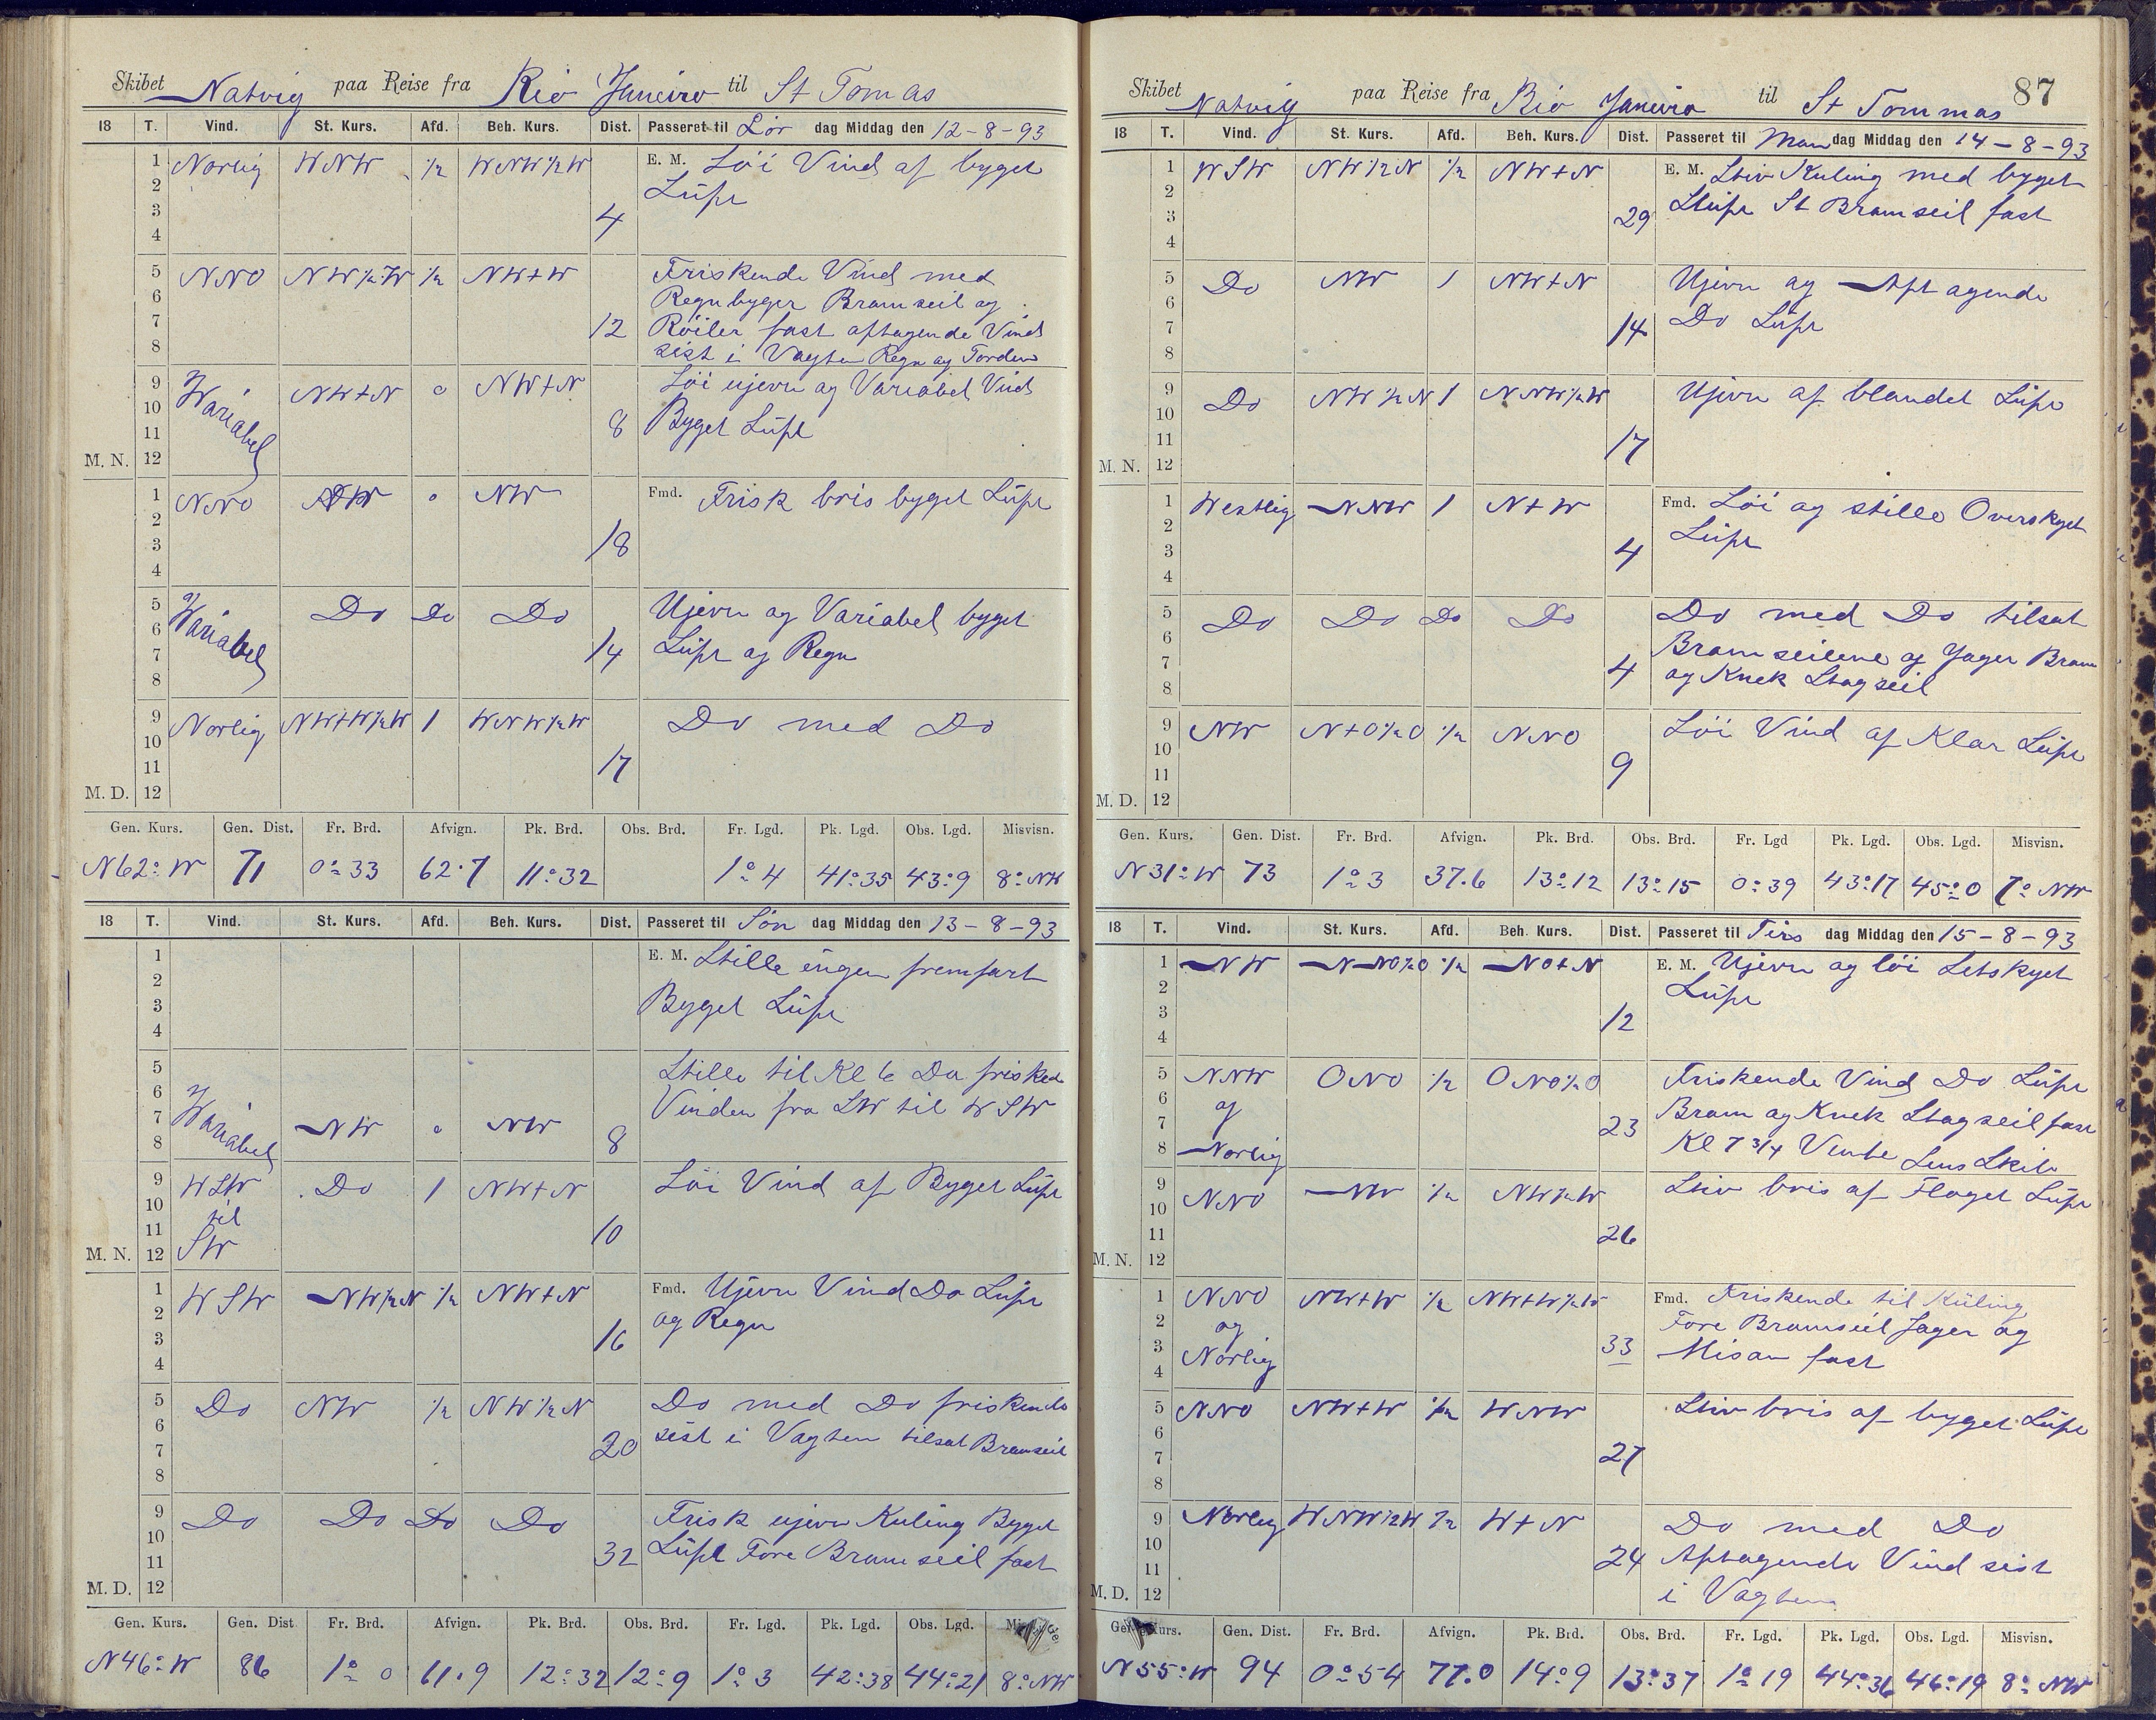 Skibet Natvig paa Reise fra Rio Janeiro til St Tomas
18 T. Vind. St. Kurs. Afd. Beh. Kurs. Dist. Passeret til Lör dag Middag den 12-8-93
1 Norlig WNW 1/2 WNW1/2W E. M. Löi Vind af byget
2 Lüft
3 4
4
5 NNO NW1/2W 1/2 NW+W Friskende Vind med
6 Regnbyger Bramseil og
7 12 Röiler fast aftagende Vind
8 sist i Vagten Regn og Torden
9 Wariabel NW+N 0 NW+N Löi ujevn og Variabel Vind
10 8 Byget Lüft
11
M. N. 12
1 NNO NW 0 NW Fmd. Frisk bris byget Lüft
2
3 18
4
5 Wariabel Do Do Do Ujevn og Variabel byget
6
7 14 Lüft og Regn
8
9 Norlig NW+W1/2W 1 WNW1/2W Do med Do
10
11 17
M. D. 12
Gen. Kurs. Gen. Dist. Fr. Brd. Afvign. Pk. Brd. Obs. Brd. Fr. Lgd. Pk. Lgd. Obs. Lgd. Misvisn.
N62°W 71 0°33 62.7 11°32 1°4 41°35 43°9 8°NW
18 T. Vind. St. Kurs. Afd. Beh. Kurs. Dist. Passeret til Sön dag Middag den 13-8-93
1 E. M. Stille ingen fremfart
2
3 Byget Lüft
4
5 Stille til Kl 6 Da frisked
6 Vinden fra SW til WSW
7 Wariabel NW 0 NW
8 8
9 WSW Do 1 NW+N Löi Vind af Byget Lüft
10 til
11 SW 10
M. N. 12
1 WSW NW1/2N 1/2 NW+N Fmd. Ujevn Vind Do Lüft
2 og Regn
3 16
4
5 Do NW 1/2 NW1/2N Do med Do friskende
6 20 sist i Vagten tilsat Bramseil
7
8
9 Do Do Do Do Frisk ujevn Kuling Byget
10
11 32 Lüft Fore Bramseil fast
M. D. 12
Gen. Kurs. Gen. Dist Fr. Brd. Afvign. Pk. Brd. Obs. Brd. Fr. Lgd. Pk. Lgd. Obs. Lgd.
N46°W 86 1°0 61.9 12°32 12°9 1°3 42°38 44°21 8°NW
87
Skibet Natvig paa Reise fra Rio Janeiro til St Tommas
18 T. Vind. St. Kurs. Afd. Beh. Kurs. Dist. Passeret til Man dag Middag den 14-8-93
1 WSW NW1/2N 1/2 NW+N E. M. Stiv Kuling med byget
2
3 29 Lüft St Bramseil fast
4
5 Do NW 1 NW+N Ujevn og Aftagende
6
7 14 Do Lüft
8
9 Do NW1/2N 1 NNW1/2W Ujevn af blandet Lüft
10
11 17
M. N. 12
1 Westlig NNW 1 N+W Fmd. Löi og stille Overskyet
2 Lüft
3 4
4
5 Do Do Do Do Do med Do tilsat
6 Bramseilene og Jager Bram
7 4 og Knek Stagseil
8
9 NW N+O1/2O 1/2 NNO Löi Vind af Klar Lüft
10
11 9
M. D. 12
Gen. Kurs. Gen. Dist. Fr. Brd. Afvign. Pk. Brd. Obs. Brd. Fr. Lgd Pk. Lgd. Obs. Lgd. Misvisn.
N31°W 73 1°3 37.6 13°12 13°15 0°39 43°17 45°0 7°NW
18 T. Vind. St. Kurs. Afd. Beh. Kurs. Dist. Passeret til Tirs dag Middag den 15-8-93
1 NW NNO1/2O 1/2 NO+N E. M. Ujevn og löi Letskyet
2 Lüft
3 12
4
5 NNW ONO 1/2 ONO1/2O Friskende Vind Do Lüft
6 og Bram og Knek Stagseil fast
7 23
8 Norlig Kl 7 3/4 Vente Lens Skib
9 NNO NW 1/2 NW1/2W Stiv bris af Floget Lüft
10
11 26
M. N. 12
1 NNO NW+W 1/2 NW+W1/2W Fmd. Friskende til Küling
2 og Fore Bramseil Jager og
3 Norlig 33 Misan fast
4
5 NNO NW+W 1/2 WNW Stiv bris af byget Lüft
6
7 27
8
9 Norlig WNW1/2W 1/2 W+N Do med Do
10
11 24 Aftagende Vind sist
M. D. 12 i Vagten
Gen. Kurs. Gen. Dist. Fr. Brd. Afvign. Pk. Brd. Obs. Brd. Fr. Lgd. Pk. Lgd. Obs. Lgd. Misvisn.
N55°W 94 0°54 77.0 14°9 13°37 1°19 44°36 46°19 8°NW